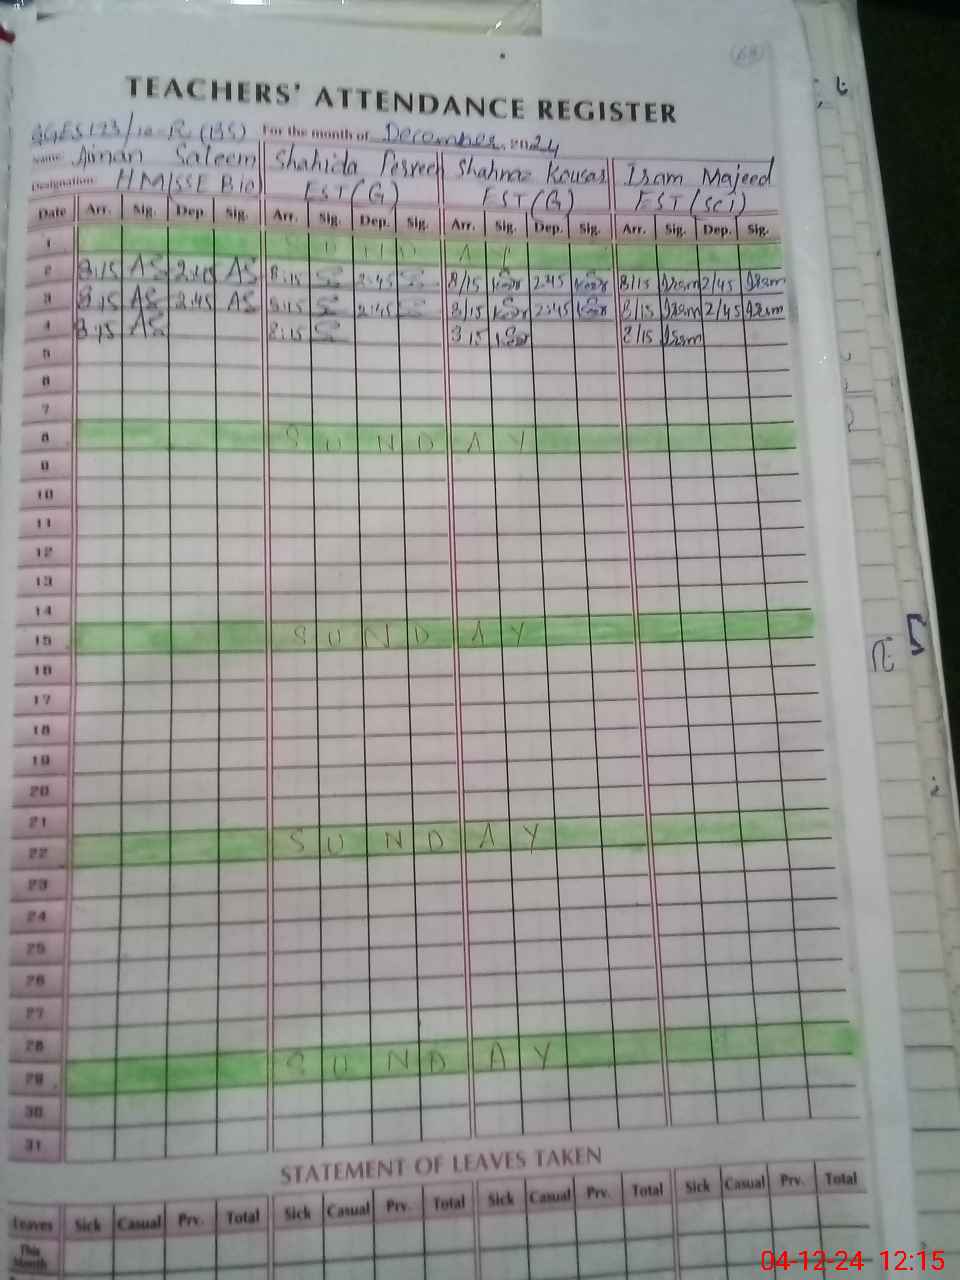 68
TEACHERS' ATTENDANCE REGISTER
GGES 123/10-R (135) For the month of December, 2024
Name: Aiman Saleem Shahida Perveen Shahnaz Kousar Iram Majeed
Designation: HM/SSE Bio EST(G) EST(G) EST(SCI)
Date Arr. Sig. Dep. Sig. Arr. Sig. Dep. Sig. Arr. Sig. Dep. Sig. Arr. Sig. Dep. Sig.
1 S U N D A Y
2 8:15 AS AS 8:15 2:45 8/15 2:45 8/15 Iram 2/45 Iram
3 8:15 AS 2:45 AS 8:15 2:45 8/15 2:45 8/15 Iram 2/45 Iram
4 8:15 AS 8:15 8 15 8/15 Iram
5
6
7
8 S U N D A Y
9
10
11
12
13
14
15 S U N D A Y
16
17
18
19
20
21
22 S U N D A Y
23
24
25
26
27
28
29 S U N D A Y
30
31
STATEMENT OF LEAVES TAKEN
Leaves Sick Casual Prv. Total Sick Casual Prv. Total Sick Casual Prv. Total Sick Casual Prv. Total
This
Month
04-12-24 12:15